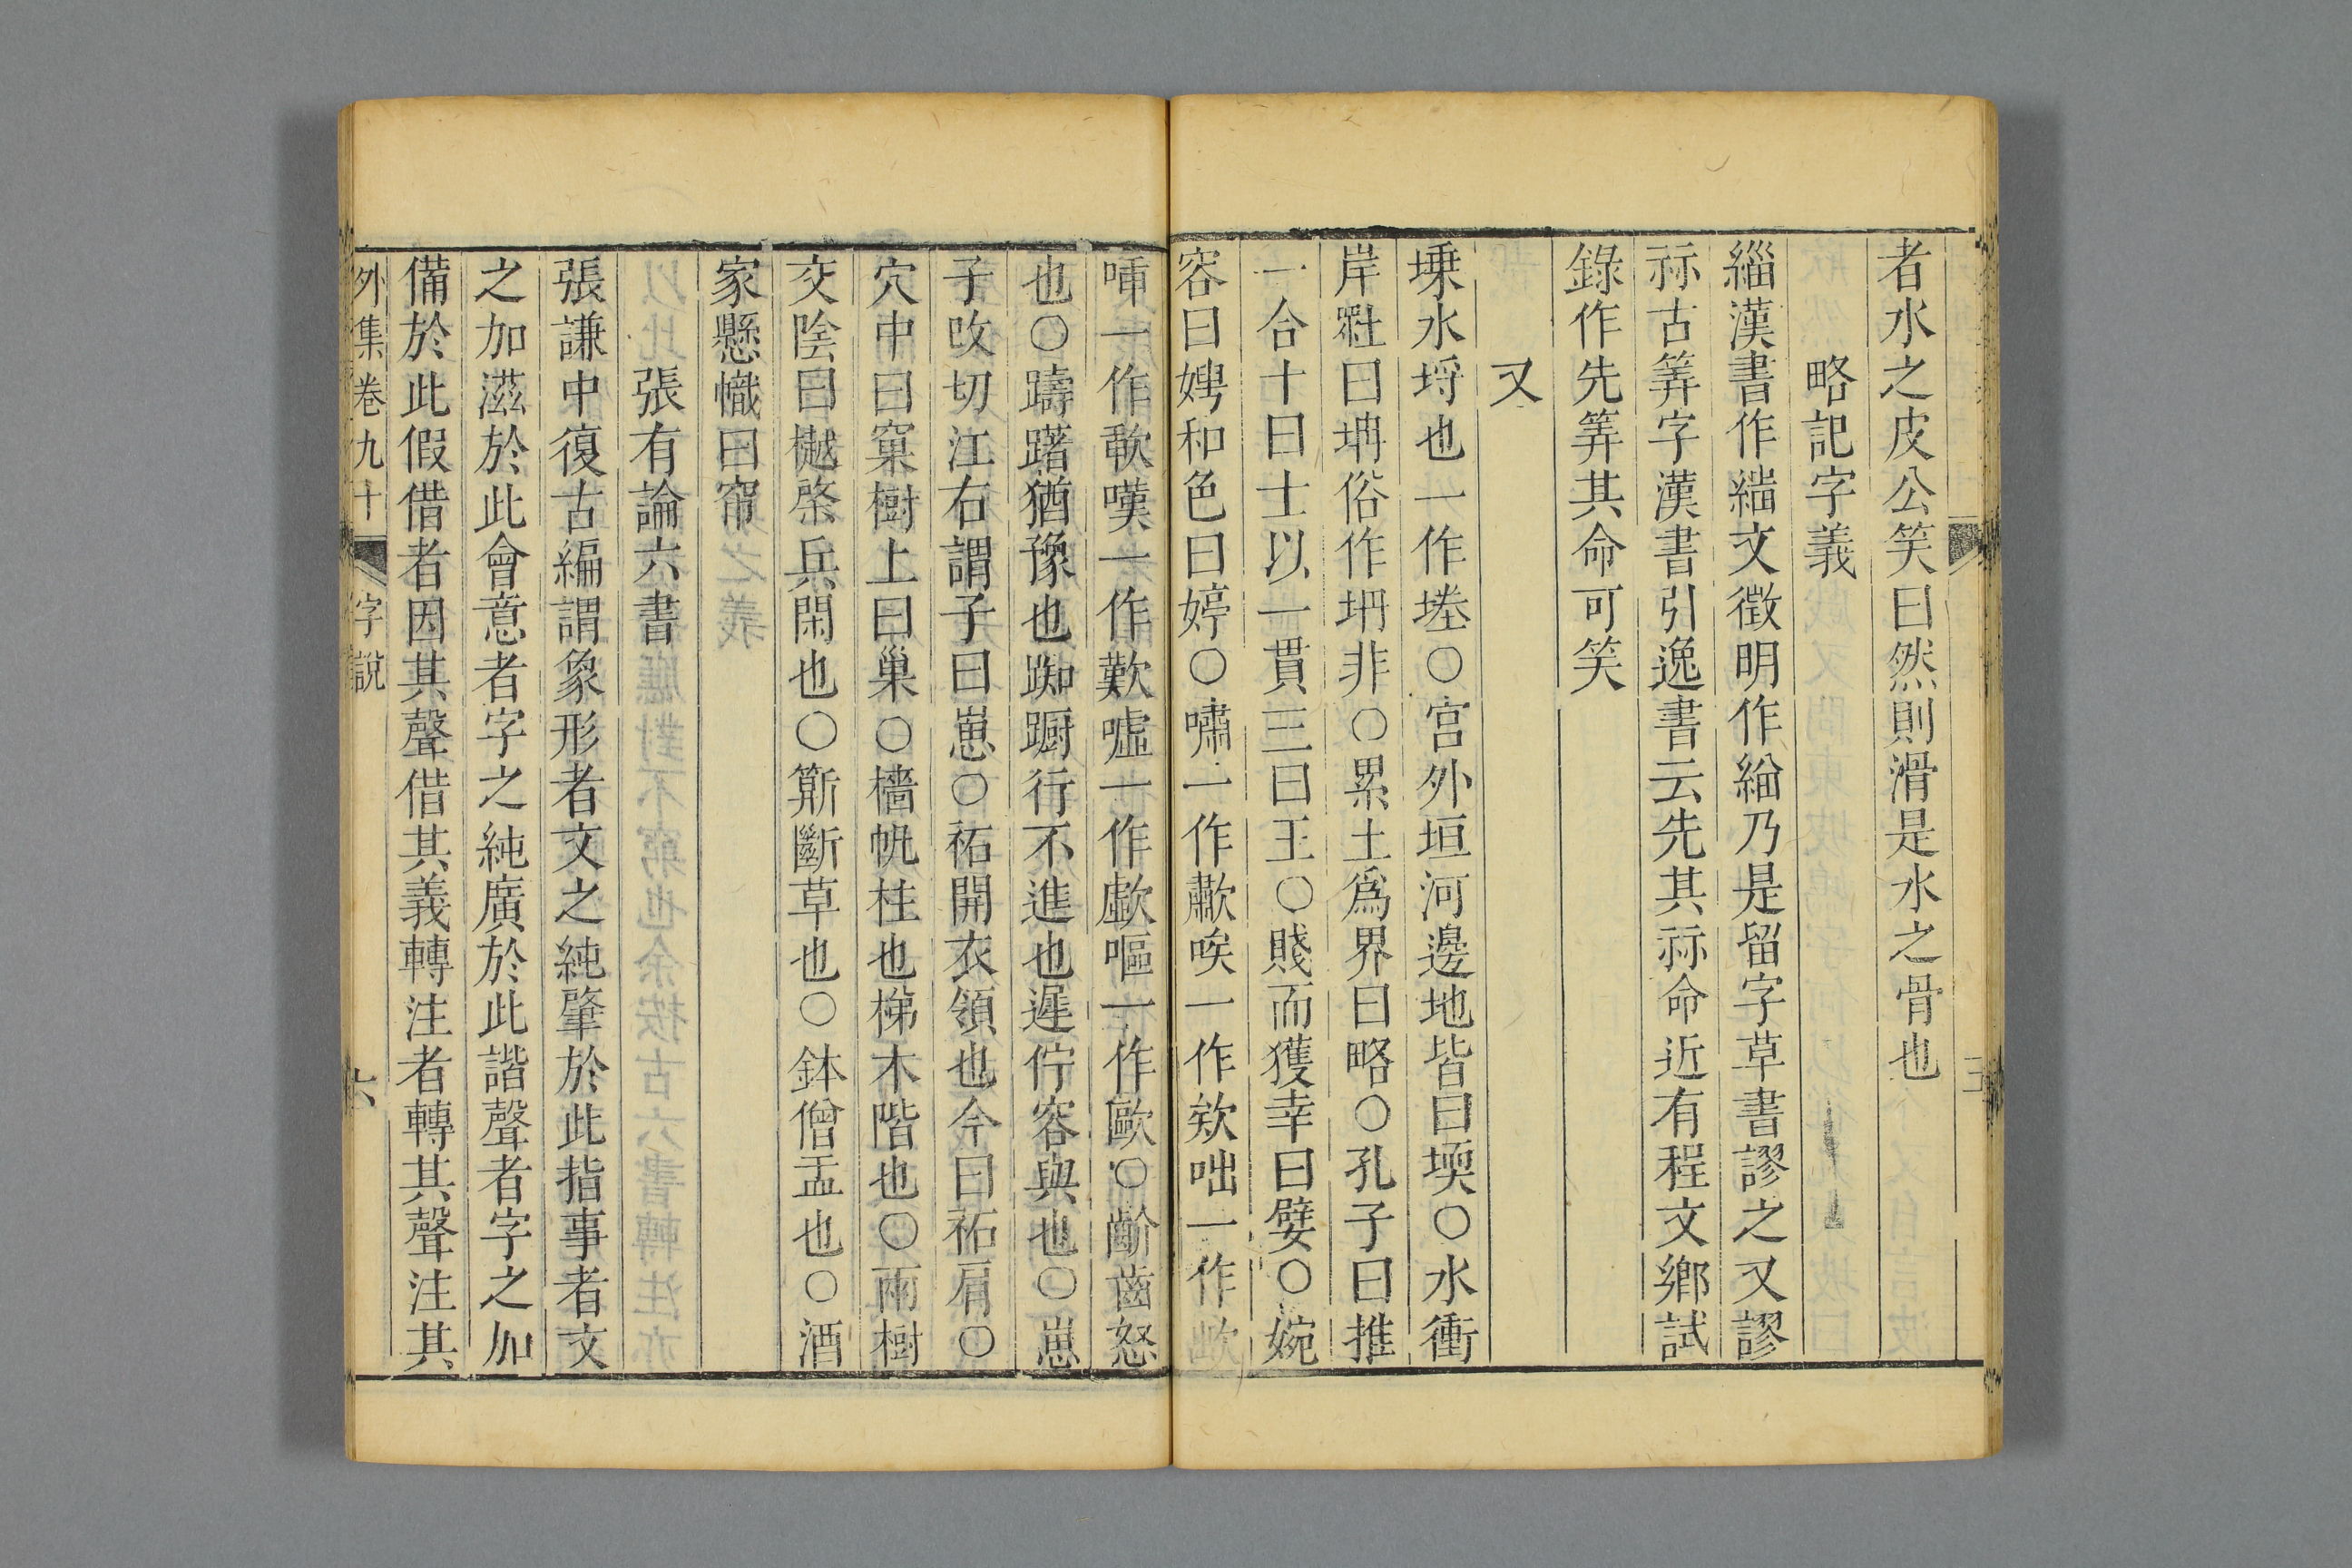 者水之皮公笑曰然則滑是水之骨也
略記字義
緇漢書作𦃘文徵明作緇乃是留字草書謬之又謬
祘古筭字漢書引逸書云先其祘命近有程文鄉試
錄作先筭其命可笑
又
塖水埒也一作堘○宮外垣河邊地皆曰堧○水衝
岸𡉏曰坍俗作坍非○累土爲界曰略○孔子曰推
一合十曰士以一貫三曰王○賤而獲幸曰嬖○婉
容曰娉和色曰婷○嘯一作歗唉一作欸咄一作㰕
喠一作㰴嘆一作歎噓一作歔嘔一作歐○齘齒怒
也○躊躇猶豫也踟躕行不進也遲佇容與也○崽
子改切江右謂子曰崽○袥開衣領也今曰袥肩○
穴中曰窠樹上曰巢○檣帆柱也梯木階也○兩樹
交陰曰樾棨兵闌也○䉤斷草也○鉢僧盂也○酒
家懸幟曰帘
張有論六書
張謙中復古編謂象形者文之純肇於此指事者文
之加滋於此會意者字之純廣於此諧聲者字之加
備於此假借者因其聲借其義轉注者轉其聲注其
外集卷九十 字說 六